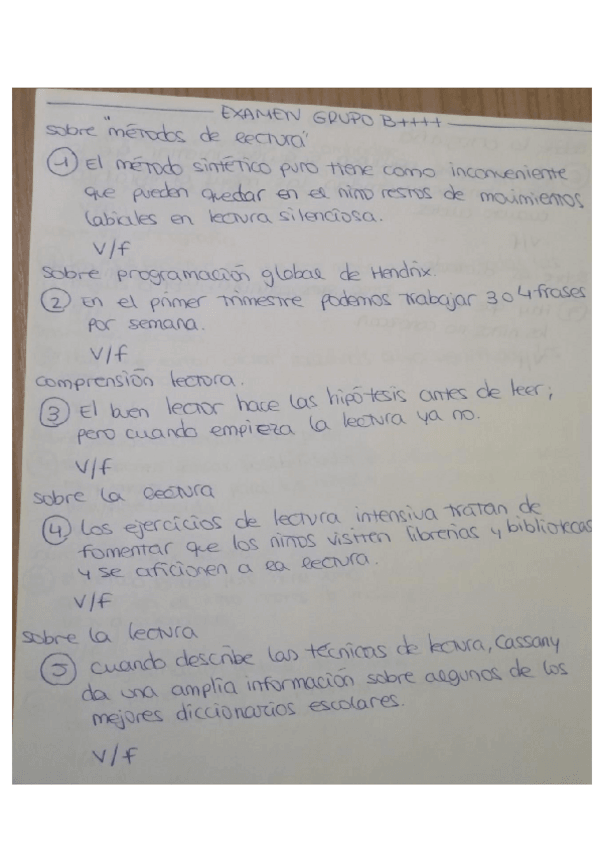 EXAMEN GRUPO B++++
sobre "métodos de lectura"
1 El método sintético puro tiene como inconveniente
que pueden quedar en el niño restos de movimientos
labiales en lectura silenciosa.
V/f
sobre programación global de Hendrix.
2 En el primer trimestre podemos trabajar 3 o 4 frases
por semana.
V/f
comprensión lectora.
3 El buen lector hace las hipótesis antes de leer;
pero cuando empieza la lectura ya no.
V/f
sobre la lectura
4 Los ejercicios de lectura intensiva tratan de
fomentar que los niños visiten librerías y bibliotecas
y se aficionen a la lectura.
V/f
sobre la lectura
5 cuando describe las técnicas de lectura, Cassany
da una amplia información sobre algunos de los
mejores diccionarios escolares.
V/f